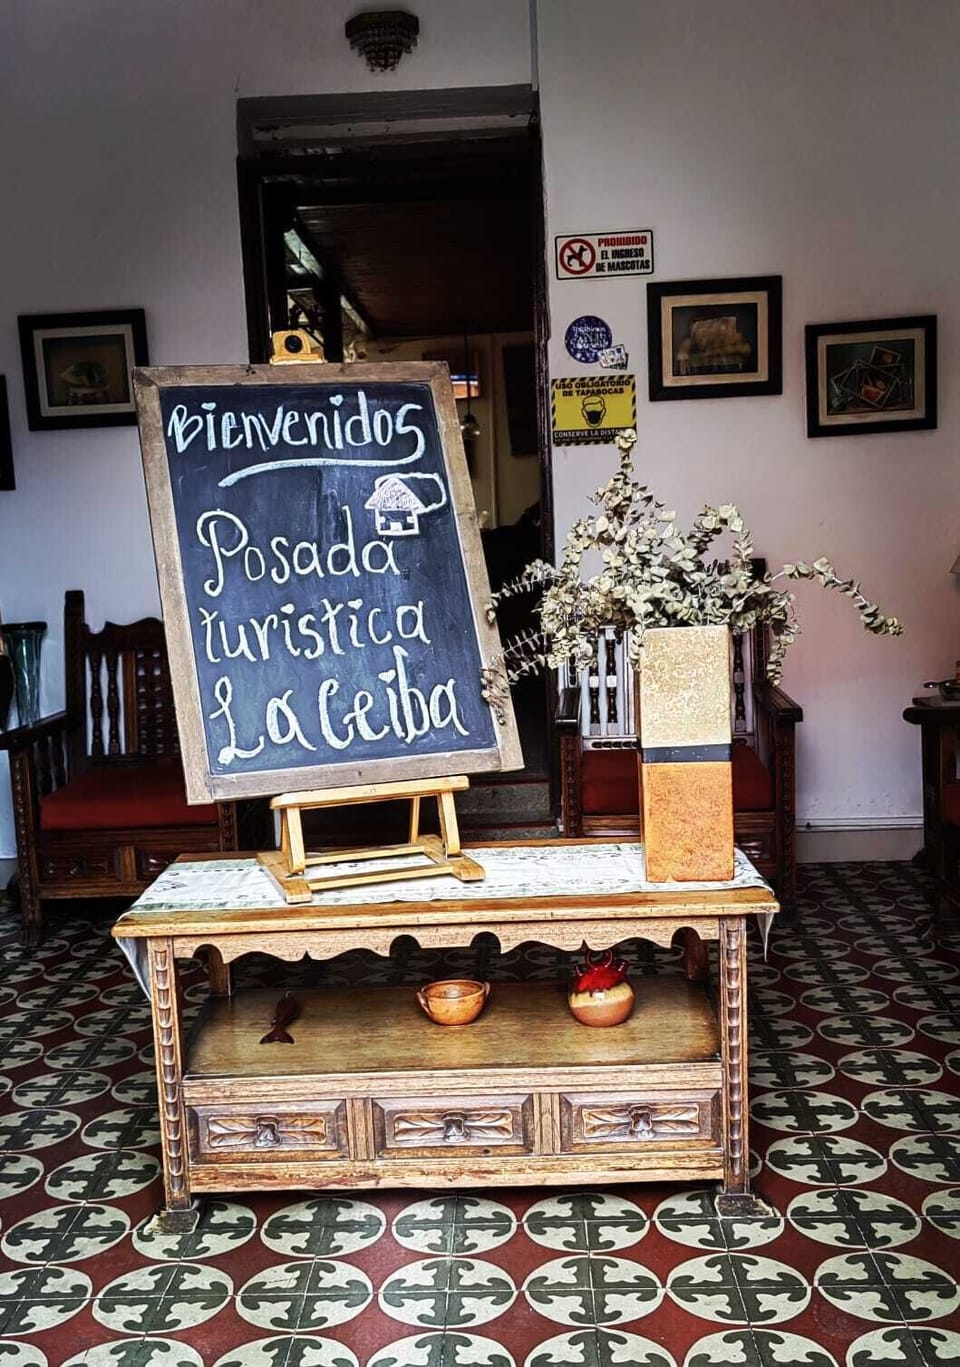 Bienvenidos
Posada
turistica
La Ceiba
PROHIBIDO
EL INGRESO
DE MASCOTAS
USO OBLIGATORIO
DE TAPABOCAS
CONSERVE LA